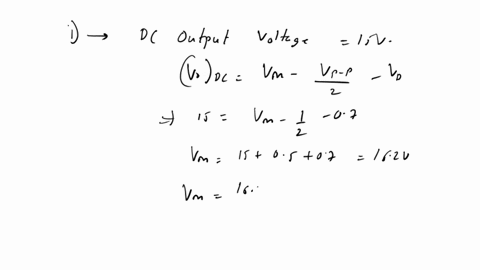 i) → DC Output Voltage = 15V.
(V0)DC = Vm - Vp-p/2 - VD
⇒ 15 = Vm - 1/2 - 0.7
Vm = 15 + 0.5 + 0.7 = 16.2V
Vm = 16.